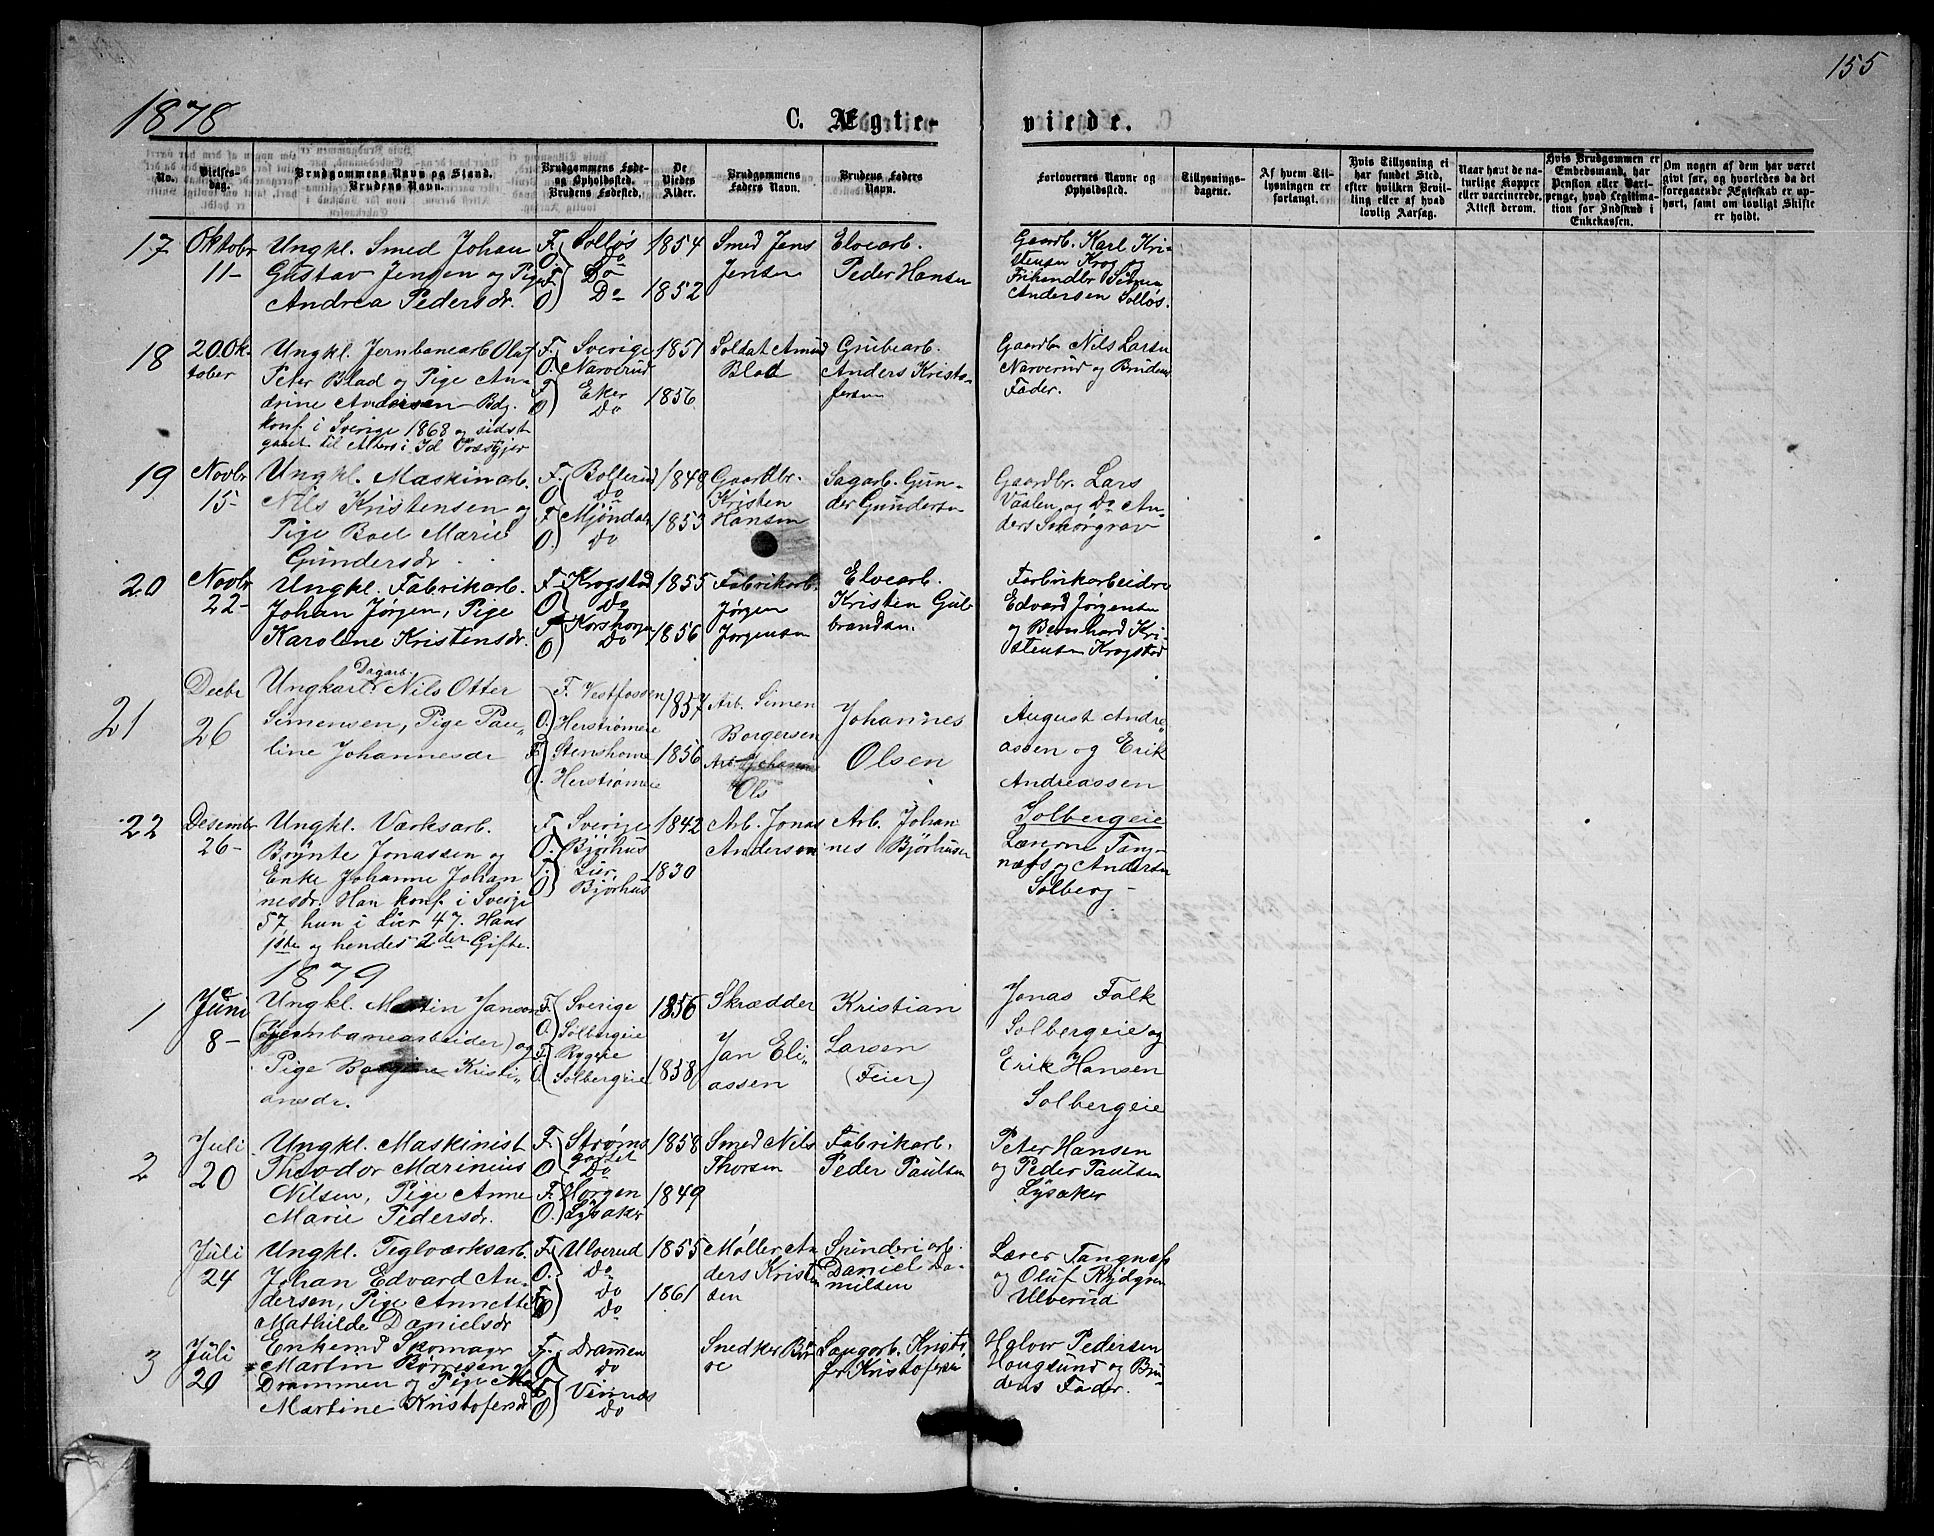 155
1878
C. Ægte-
viede.
No.
Vielses-
dag.
Brudgommens Navn og Stand.
Brudens Navn.
Brudgommens Føde-
og Opholdssted.
Brudens Fødested.
De
Viedes
Alder.
Brudgommens
Faders Navn.
Brudens Faders
Navn.
Forlovernes Navne og
Opholdssted.
Tillysnings-
dagene.
Af hvem Til-
lysningen er
forlangt.
Hvis Tillysning ei
har fundet Sted,
efter hvilken Bevil-
ling eller af hvad
lovlig Aarsag.
Naar havt de na-
turlige Kopper
eller vaccinerede.
Attest derom.
Hvis Brudgommen er
Embedsmand, har
Pension eller Vart-
penge, hvad Legitima-
tion for Indskud i
Enkekassen.
Om nogen af dem har været
gift før, og hvorledes da det
foregaaende Ægteskab er op-
hørt, samt om lovligt Skifte
er holdt.
17
Oktobr
11-
Ungkl. Smed Johan
Gustav Jensen og Pige
Andrea Pedersdr.
F. Solløs
O. Do
F. Do
O. Do
1854
1852
Smed Jens
Jensen
Elvearb.
Peder Hansen
Gaardb. Karl Kri-
stensen Krog og
Andersen Solløs.
18
20 Ok-
tober
Ungkl. Jernbanearb Olaf
Peter Blad og Pige An-
drine Andersen Bdg.
konf. i Sverige 1868 og sidst
gaaet til Alters i Id Præstgjer
F. Sverige
O. Narverud
F. Eker
O. Do
1851
1856
Soldat Amund
Blad
Grubearb.
Anders Kristo-
fersen
Gaardb Nils Larsen
Narverud og Brudens
Fader.
19
Novbr
15-
Ungkl. Maskinarb.
Nils Kristensen og
Pige Boel Marie
Gundersdr.
F. Bollerud
O. do
F. Mjøndal
O. Do
1848
1853
Gaardbr.
Kristen
Hansen
Sagarb. Gun-
der Gundersen
Gaardbr. Lars
Vaalen og Do An-
ders Smørgrav
20
Novbr
22-
Ungkl. Fabrikarb.
Johan Jørgen, Pige
Karoline Kristensdr.
F. Krogstad
O. Do
F. Korshorgen
O. Do
1855
1856
Fabrikarb.
Jørgen
Jørgensen
Elvearb.
Kristen Gul-
brandsen.
Farbrikarbeidere
Edvard Jørgensen
og Bernhard Kri-
stensen Krogstad
21
Decbr
26
Dagarb
Ungkarl Nils Otter
Simensen, Pige Pau-
line Johannesdr
F. Vestfossen
O. Herstrømeie
F. Stenshorne
O. Herstrømeie
1857
1856
Arb. Simen
Borgersen
Arb Johannes
Ols
Johannes
Olsen
August Andre-
assen og Erik
Andreassen
Solbergeie
22
Desembr
26-
Ungkl. Værksarb.
Brynte Jonassen og
Enke Johanne Johan
nesdr. Han konf. i Sverige
57, hun i Lier 47. Hans
1ste og hendes 2den Gifte.
F. Sverige
O. Bjørhus
F. Lier.
O. Bjørhus
1842
1830
Arb. Jonas
Anderson
Arb. Johan
nes Bjørhusen
Lærerne Tang-
næs og Andersen
Solberg
1879
1
Juni
8-
Ungkl. Martin Janson
(Jernbanearbeider) og
Pige Borgine Kristi-
ansdr.
F. Sverige
O. Solbergeie
F. Rygeie
O. Solbergeie
1856
1858
Skrædder
Jan Eli-
assen
Kristian
Larsen
(Feier)
Jonas Falk
Solbergeie og
Erik Hansen
Solbergeie
2
Juli
20
Ungkl. Maskinist
Theodor Marinius
Nilsen, Pige Anne
Marie Pedersdr.
F. Strøms
godset
O. Do
F. Horgen
O. Lysaker
1858
1849
Smed Nils
Thorsen
Fabrikarb.
Peder Paulsen
Peter Hansen
og Peder Paulsen
Lysaker
Juli
24
Ungkl. Teglværksarb.
Johan Edvard An-
dersen, Pige Annette
Mathilde Danielsdr
F. Ulverud
O. Do
F. Do
O. Do
1855
1861
Møller An
ders Kristen
sen
Spinderiarb.
Daniel Da-
nielsen
Lærer Tangnæs
og Oluf Rydgren
Ulverud
3
Juli
20
Enkemd Skomager
Martin Børresen af
Drammen og Pige
Martine Kristofersdr
F. Dramen
O. do
F. Vimnes
O. Do
Smedker Bør
re
Laugarb. Kristo
fer Kristofersen
Halvor Pedersen
Hougsund og Bru-
dens Fader.